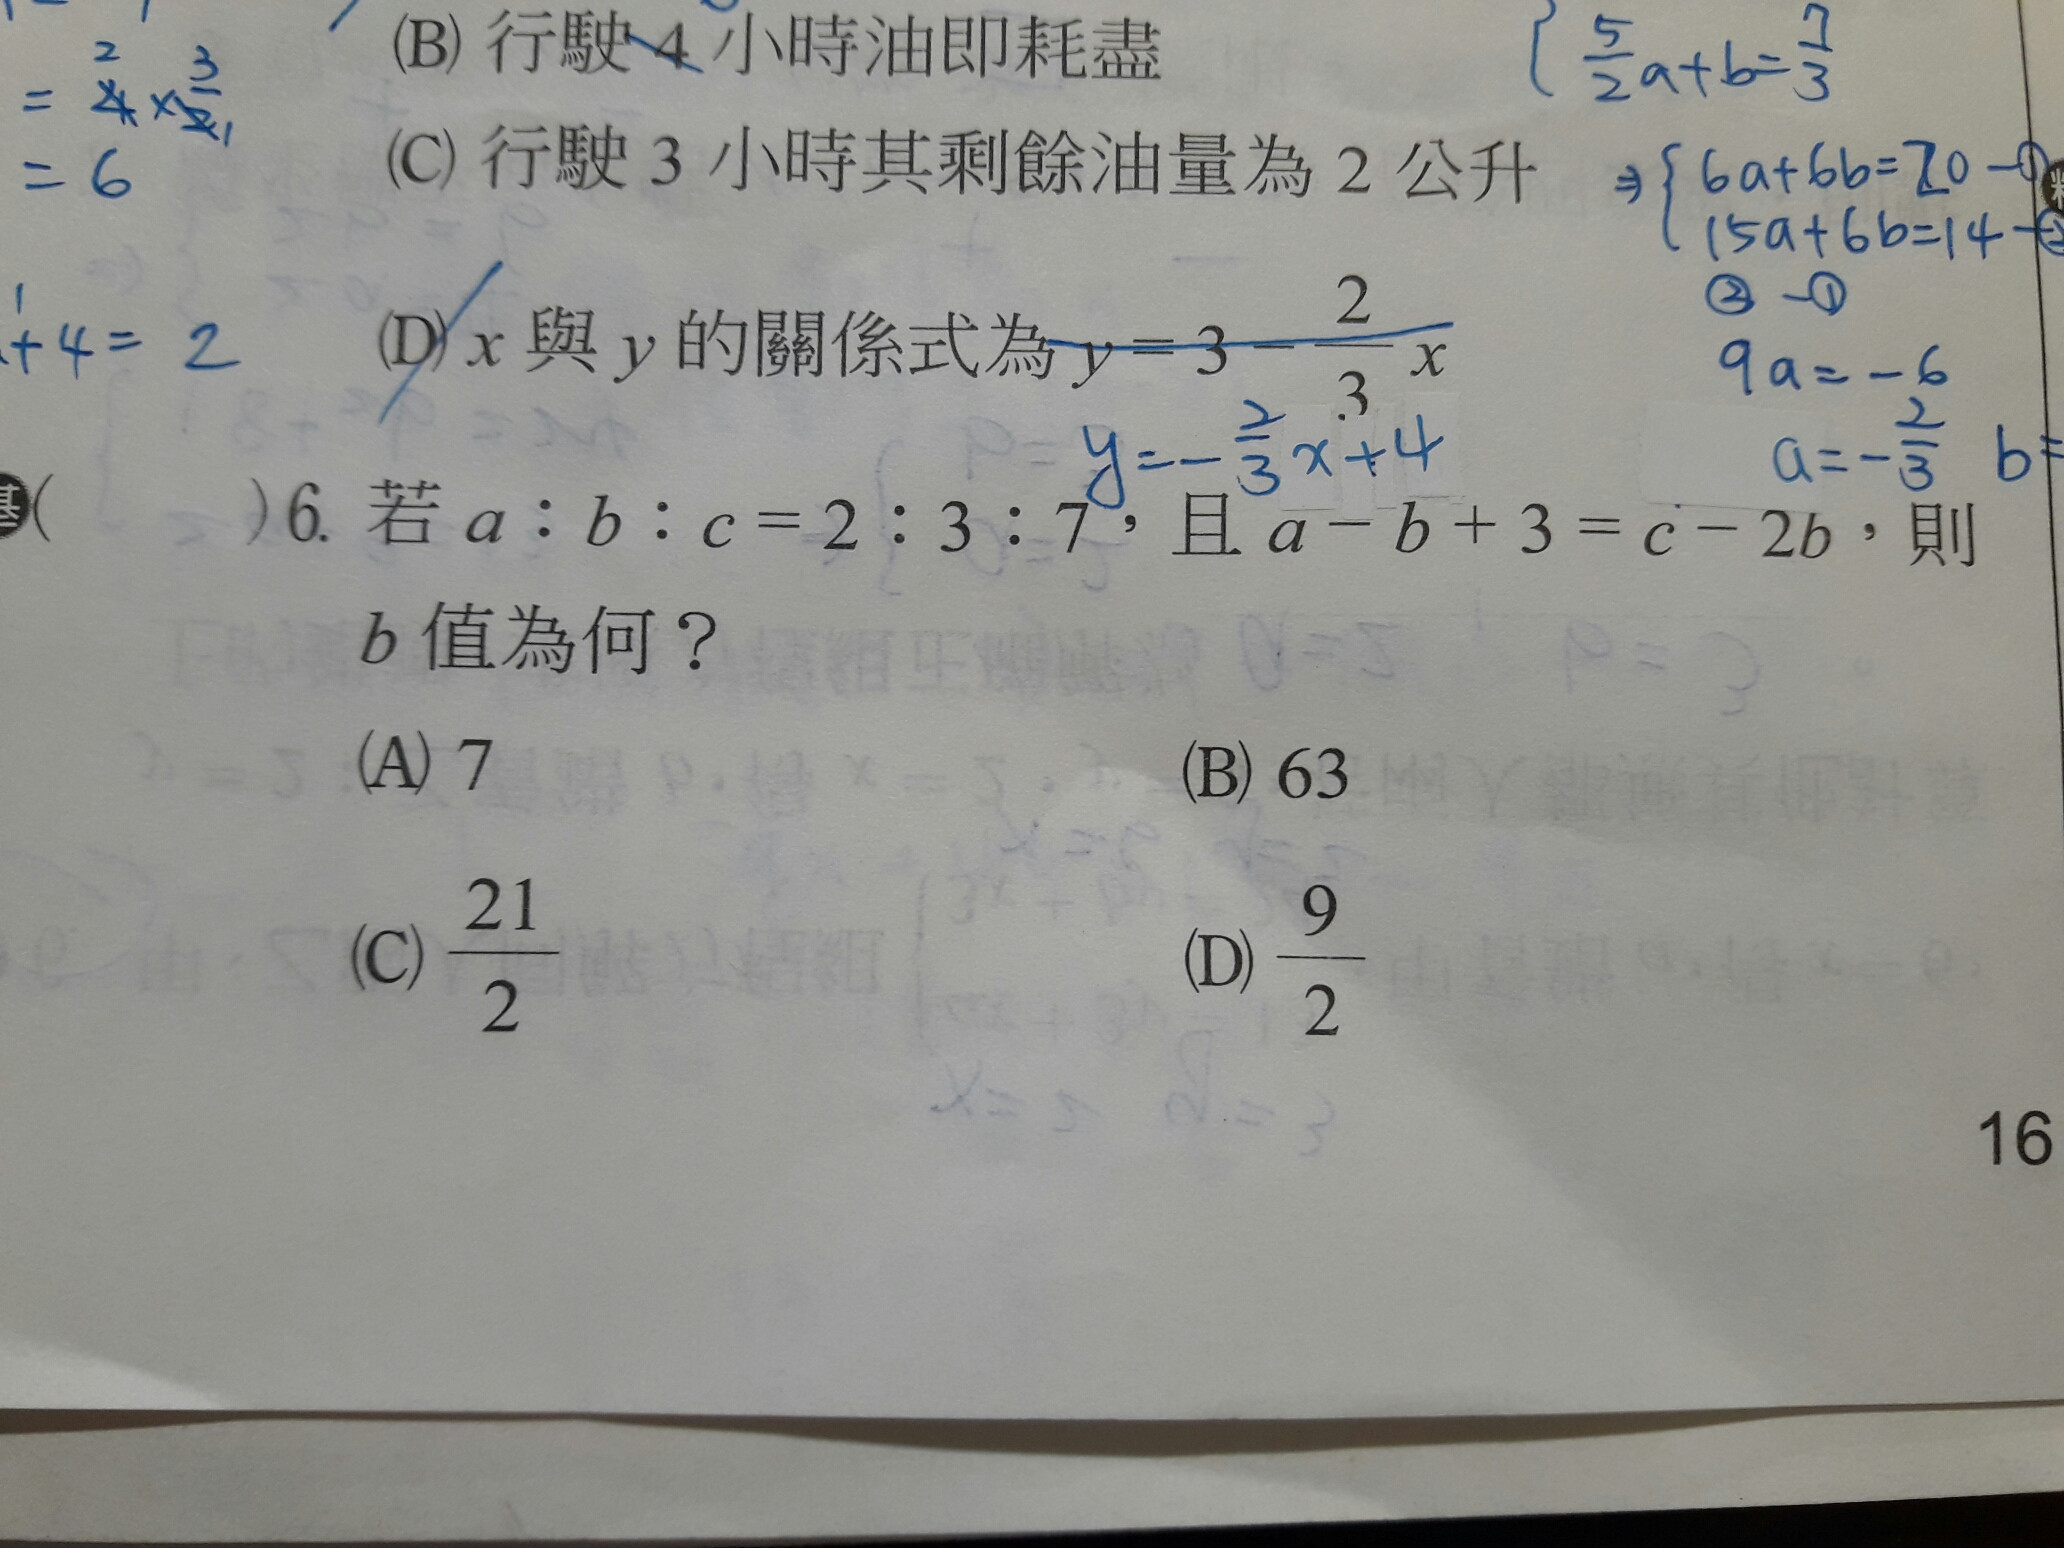 (B) 行駛 4 小時油即耗盡
(C) 行駛 3 小時其剩餘油量為 2 公升
(D) x 與 y 的關係式為 y = 3 − 2/3 x
y = −2/3 x + 4
基( ) 6. 若 a：b：c = 2：3：7，且 a − b + 3 = c − 2b，則
b 值為何？
(A) 7
(B) 63
(C) 21/2
(D) 9/2
16
= 4 × 3/2
= 6
+4 = 2
5/2 a + b = 7/3
⇒ { 6a + 6b = 20 − ①
15a + 6b = 14 − ②
② − ①
9a = −6
a = −2/3 b =